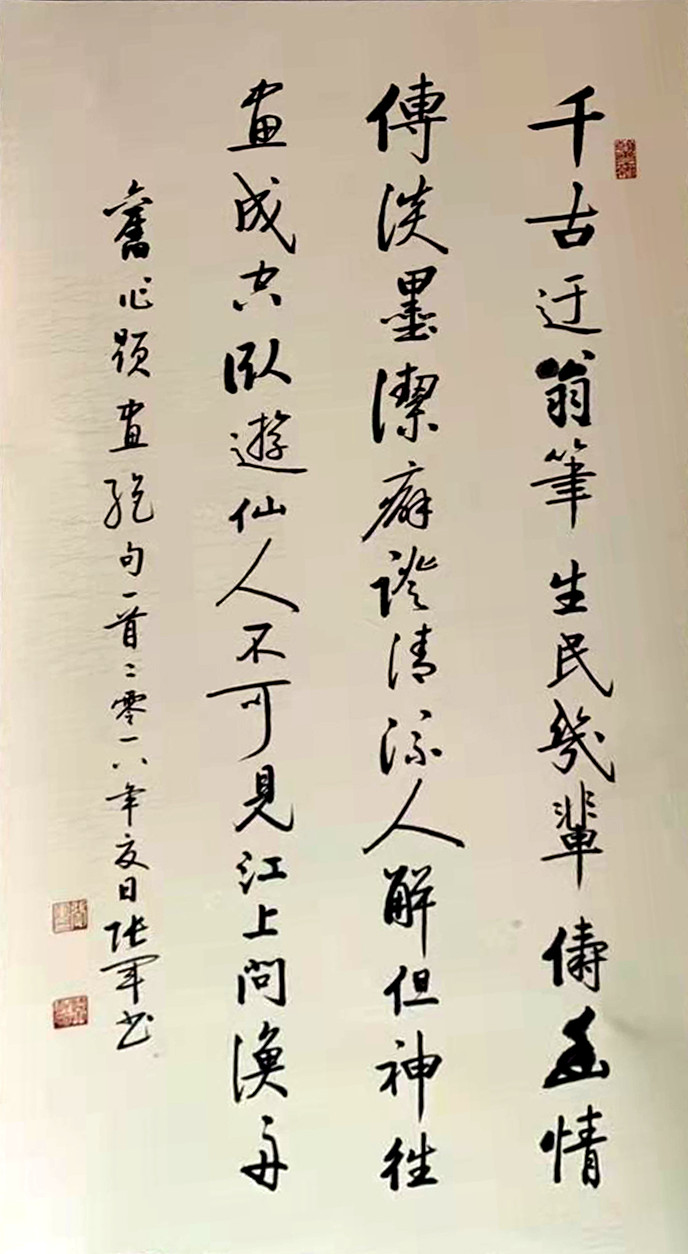 千古迂翁筆生民幾輩儔幽情
傳淡墨潔癖證清流人解但神往
畫成空臥遊仙人不可見江上問漁舟
舊作題畫絕句一首二零一八年夏日張軍書